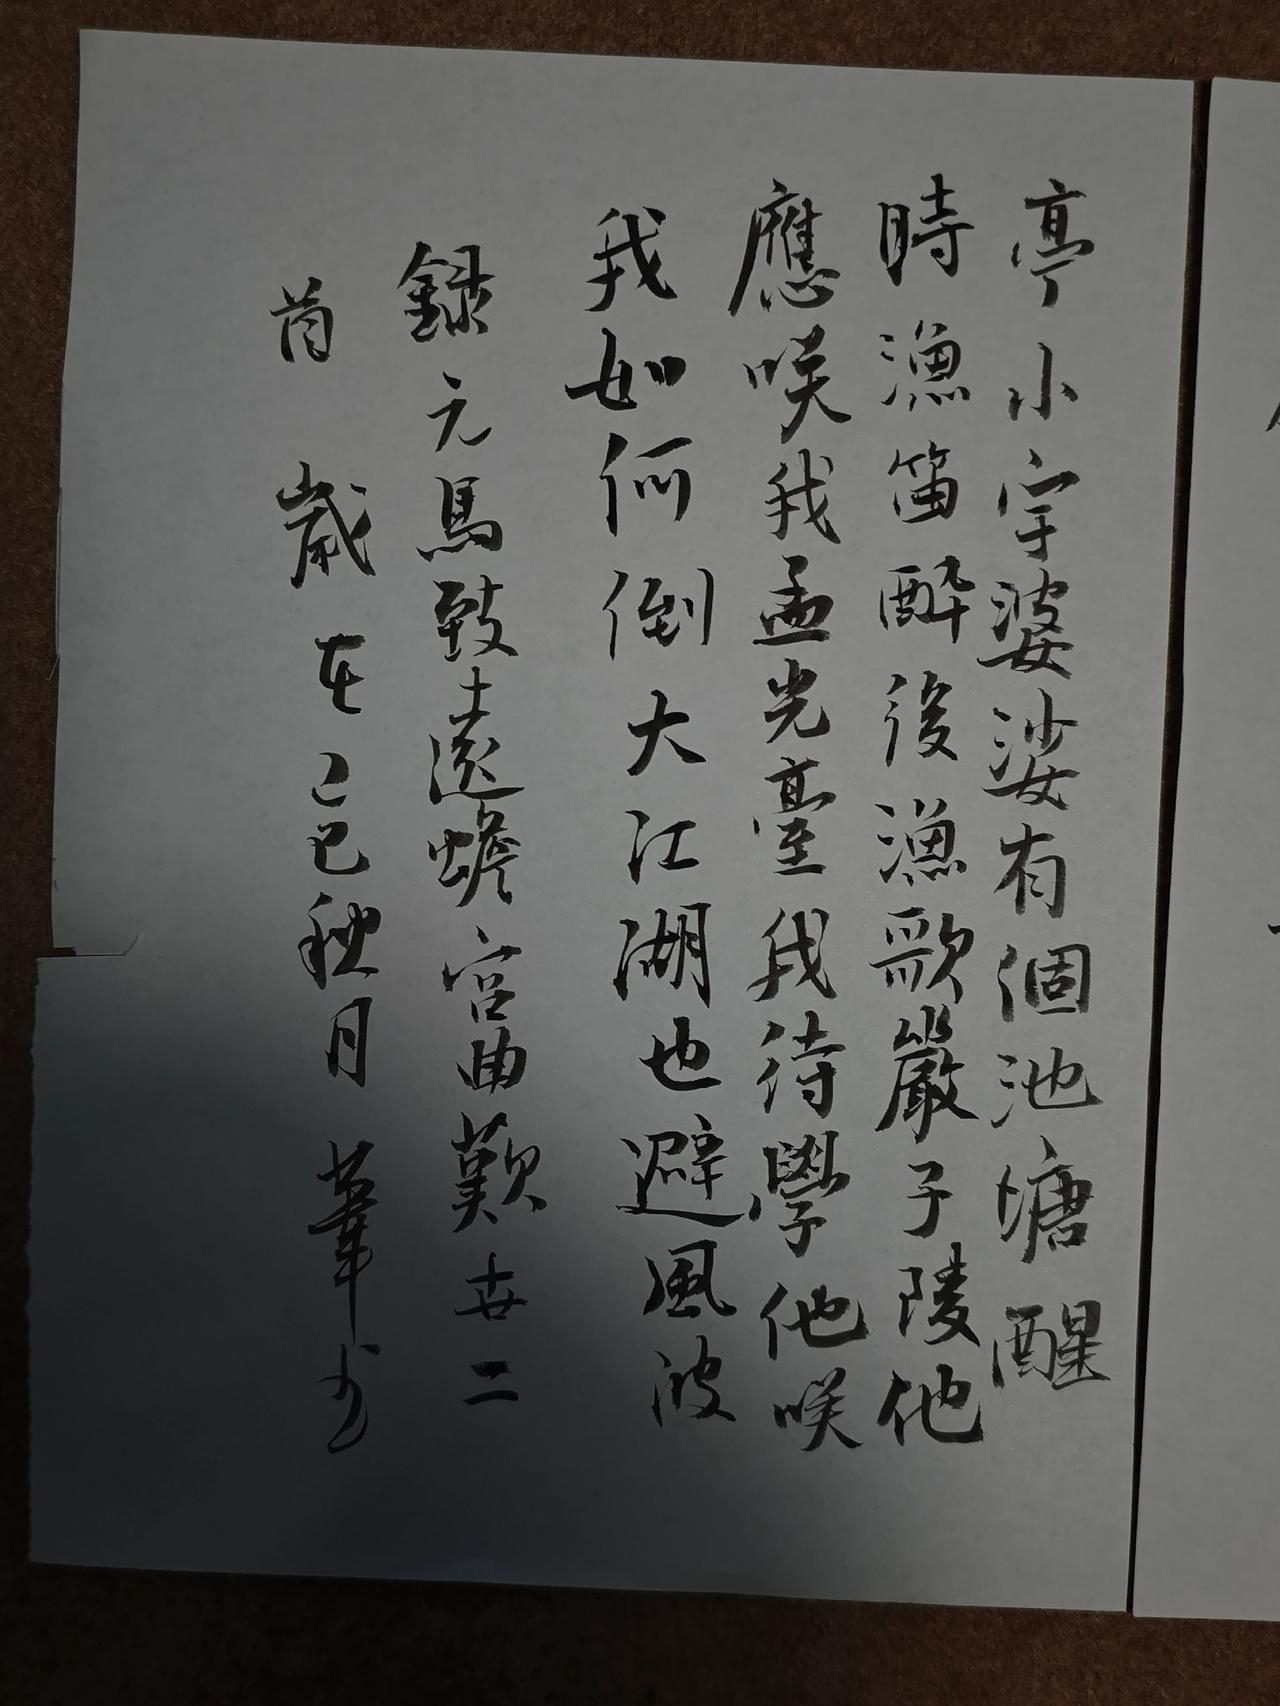 亭小宇婆娑有個池塘醒
時漁笛醉後漁歌嚴子陵他
應咲我孟光臺我待學他咲
我如何倒大江湖也避風波
錄元馬致遠蟾宮曲歎廿二
首 歲在乙巳秋月 葦书